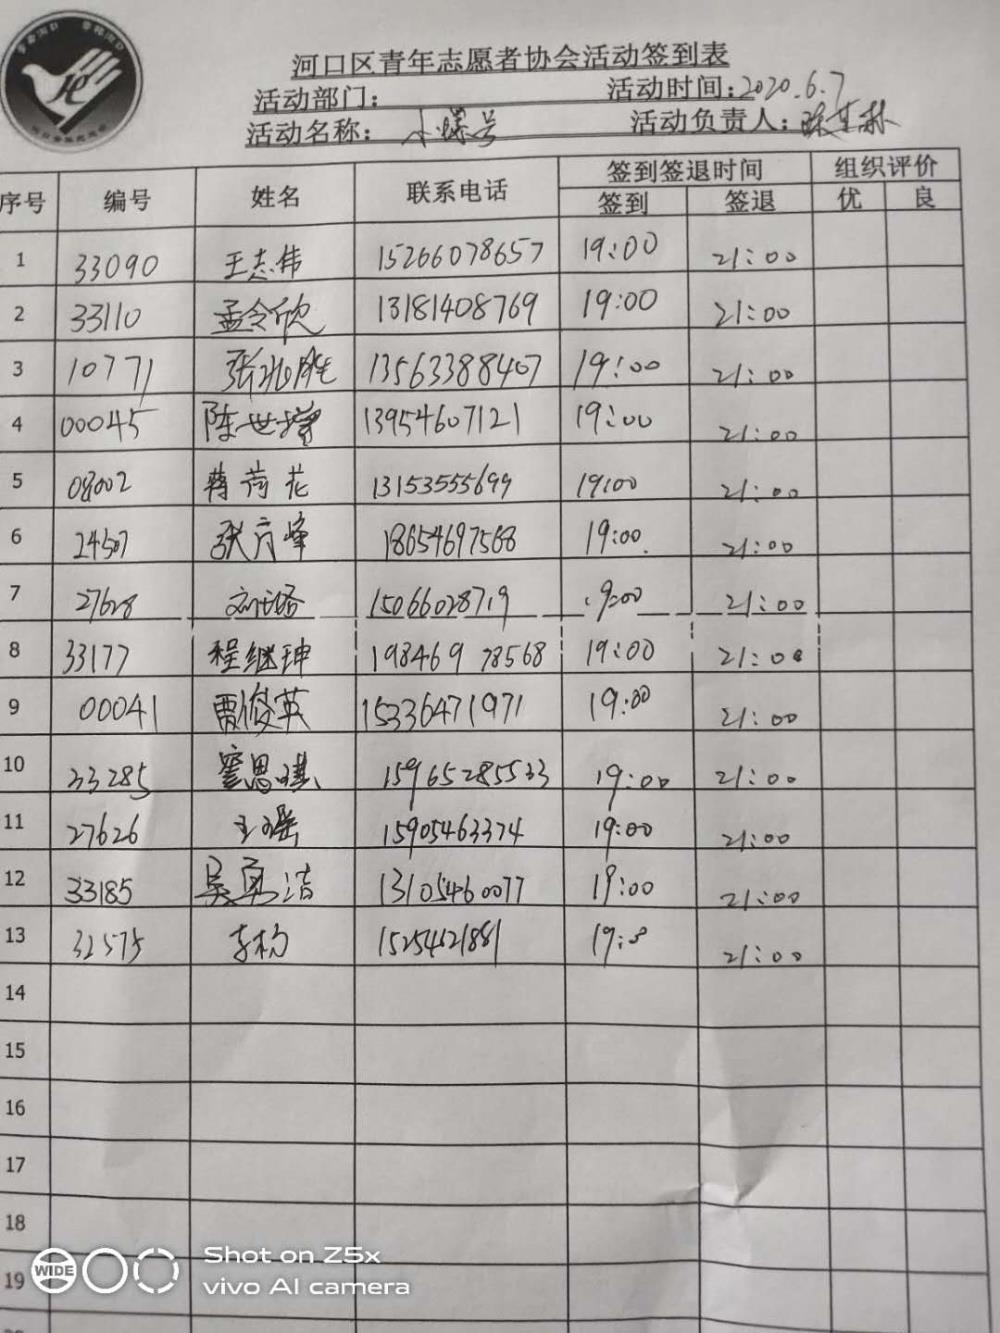 河口区青年志愿者协会活动签到表
活动部门： 活动时间：2020.6.7
活动名称：小螺号 活动负责人：
序号 编号 姓名 联系电话 签到签退时间 组织评价
签到 签退 优 良
1 33090 王志伟 15266078657 19:00 21:00
2 33110 孟令欣 13181408769 19:00 21:00
3 10771 张兆胜 13563388407 19:00 21:00
4 00045 陈世增 13954607121 19:00 21:00
5 08002 蒋荷花 13153555699 19:00 21:00
6 24507 张六峰 18654697568 19:00. 21:00
7 27628 15066028719 19:00 21:00
8 33177 程继珅 19846978568 19:00 21:00
9 00041 贾俊英 15336471971 19:00 21:00
10 33285 窦思琪 15965285533 19:00 21:00
11 27626 王瑶 15905463374 19:00 21:00
12 33185 吴勇洁 13105460077 19:00 21:00
13 32575 李杨 15254621881 19:0 21:00
14
15
16
17
18
19
WIDE Shot on Z5x
vivo AI camera